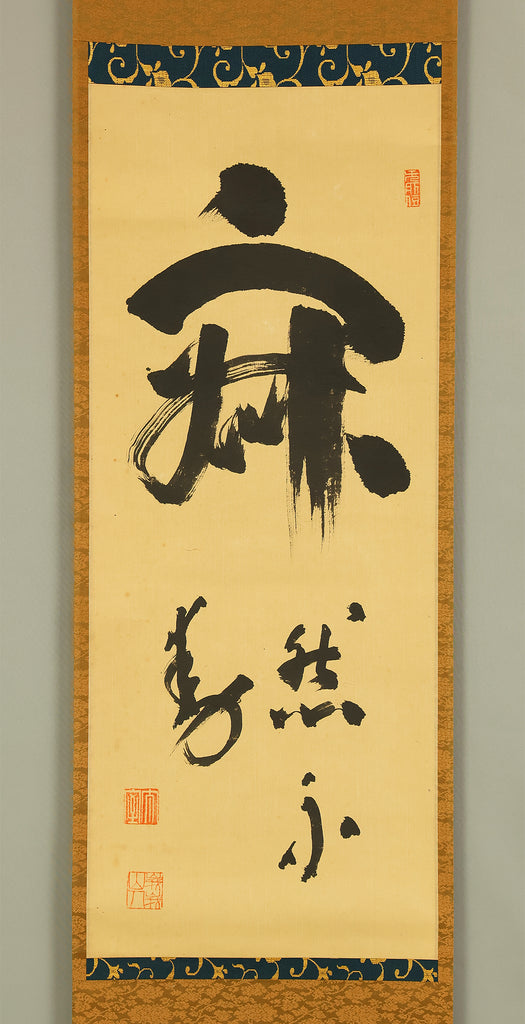 寂
然不
動